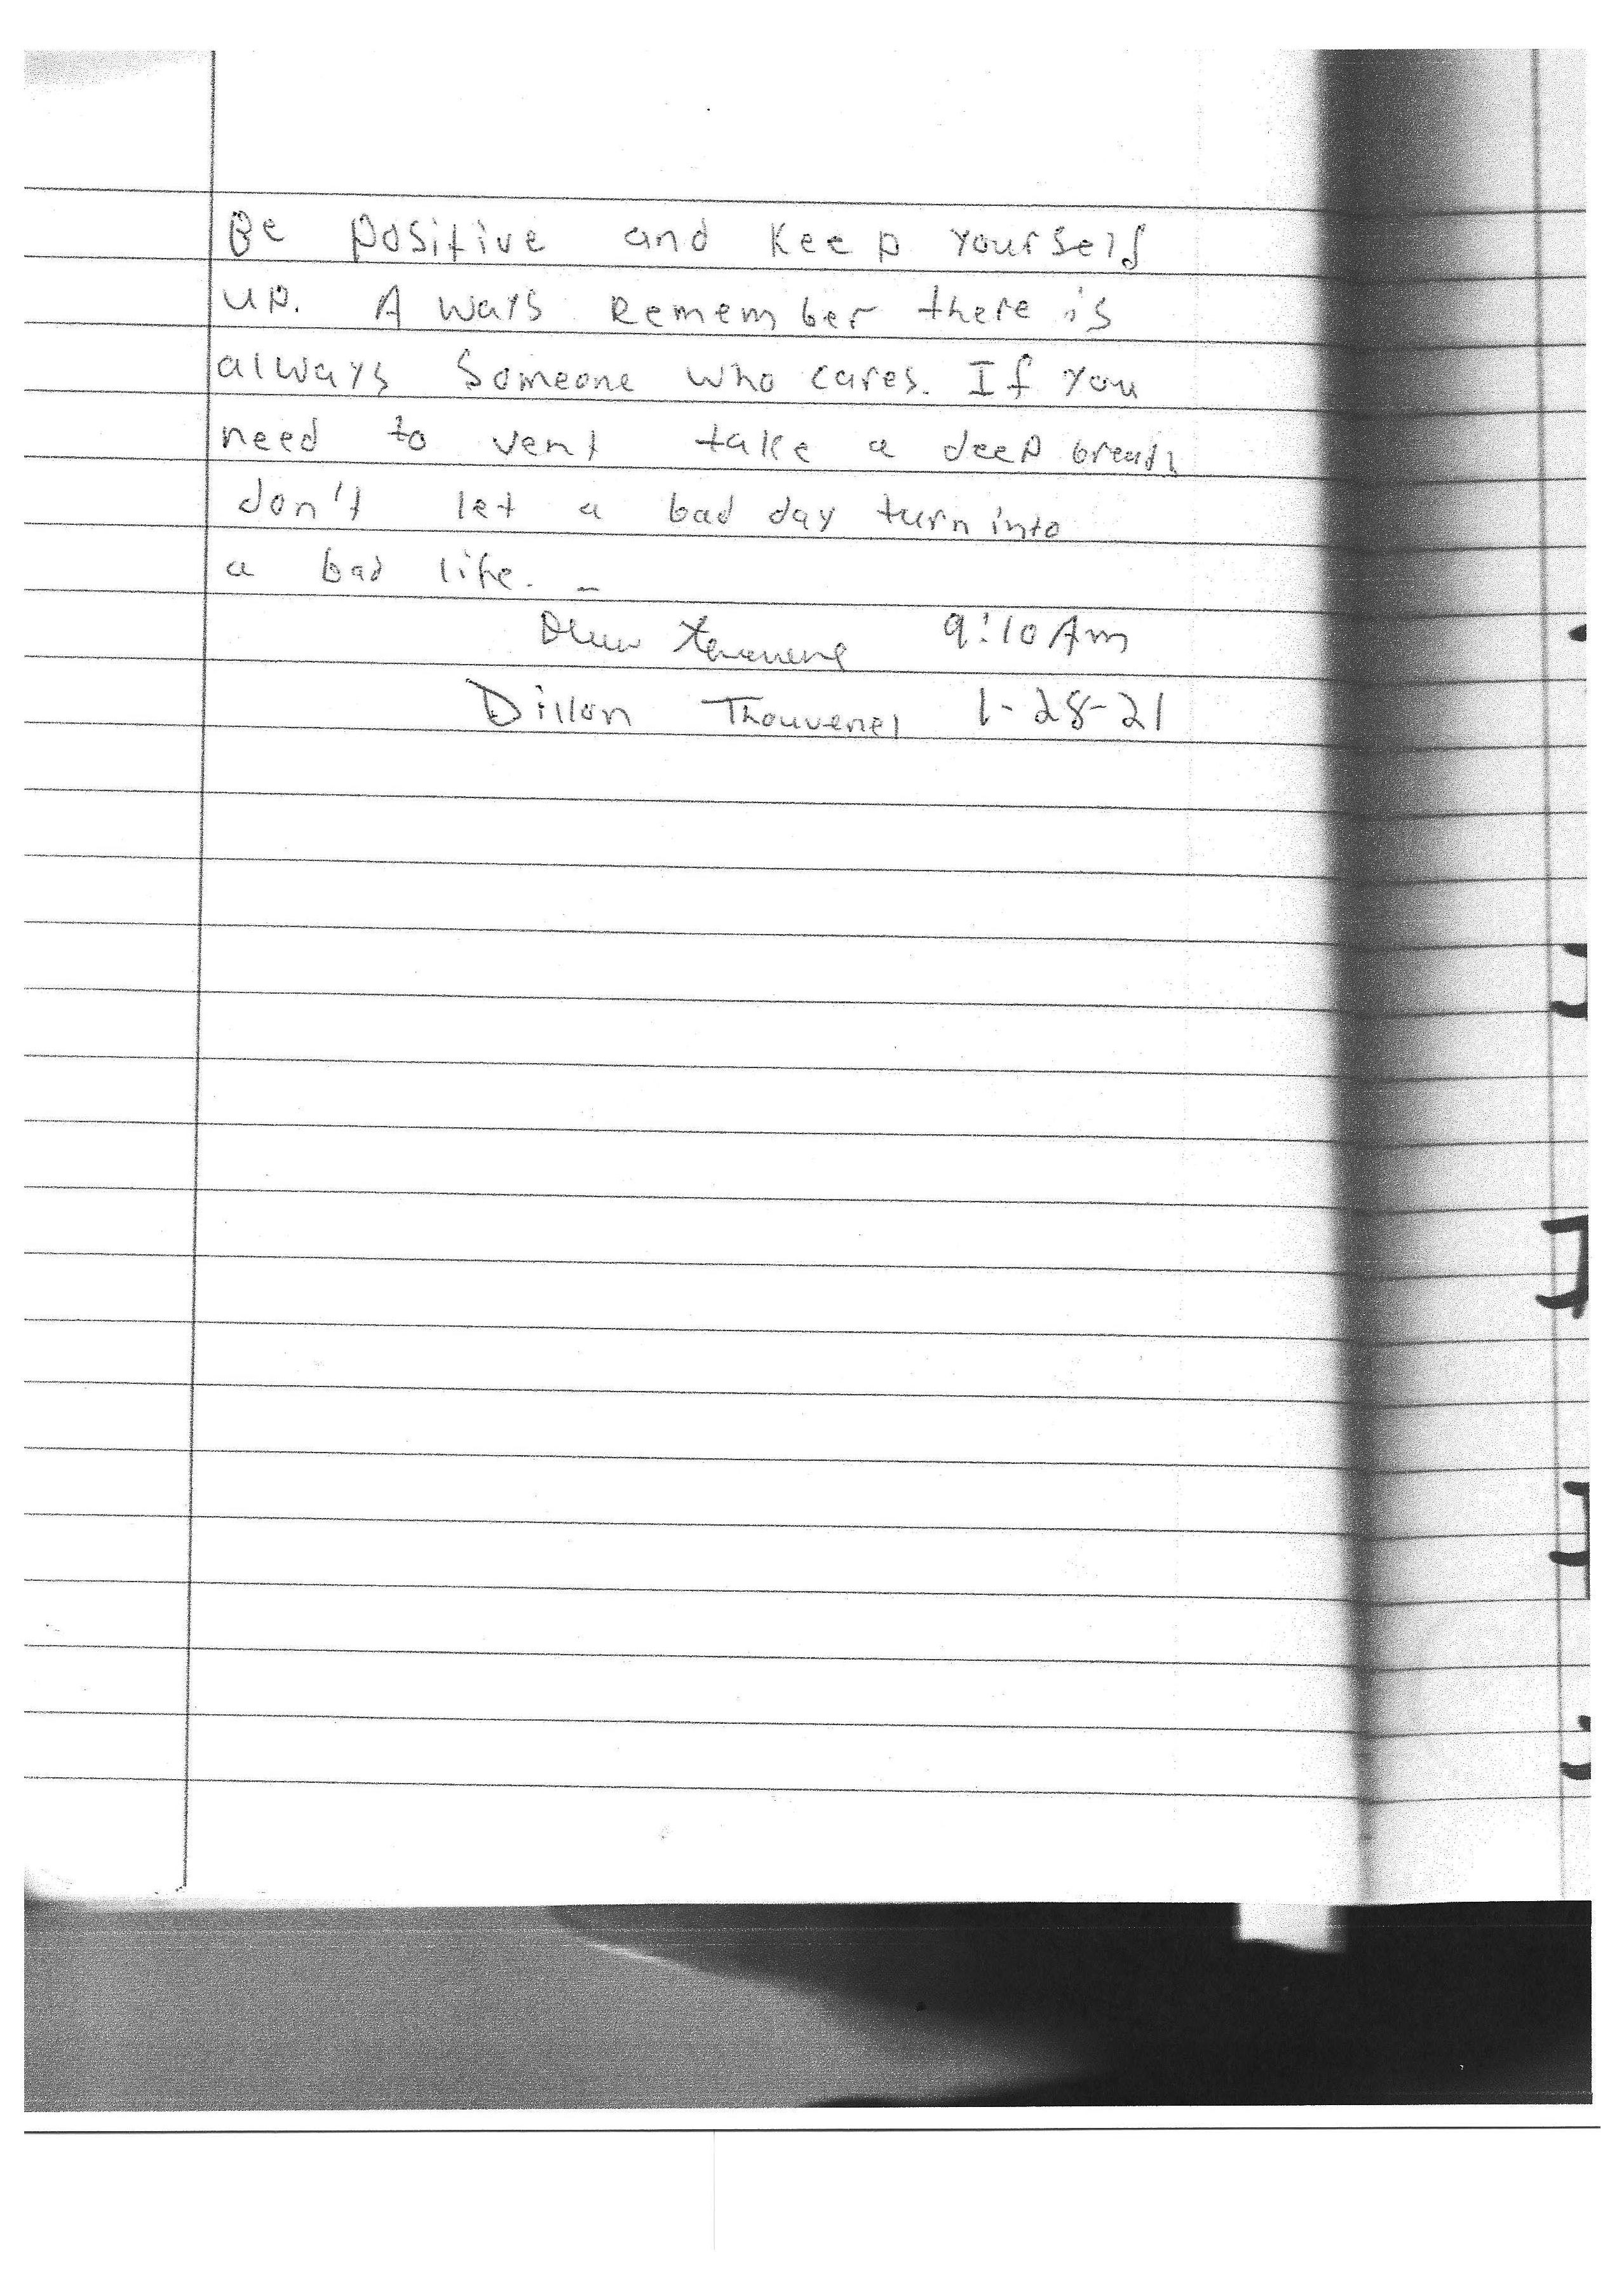 Be positive and Keep yourself
up. A ways Remember there is
always Someone who cares. If you
need to vent take a deep breath
don't let a bad day turn into
a bad life. -
9:10 Am
Dillon Thouvenel 1-28-21